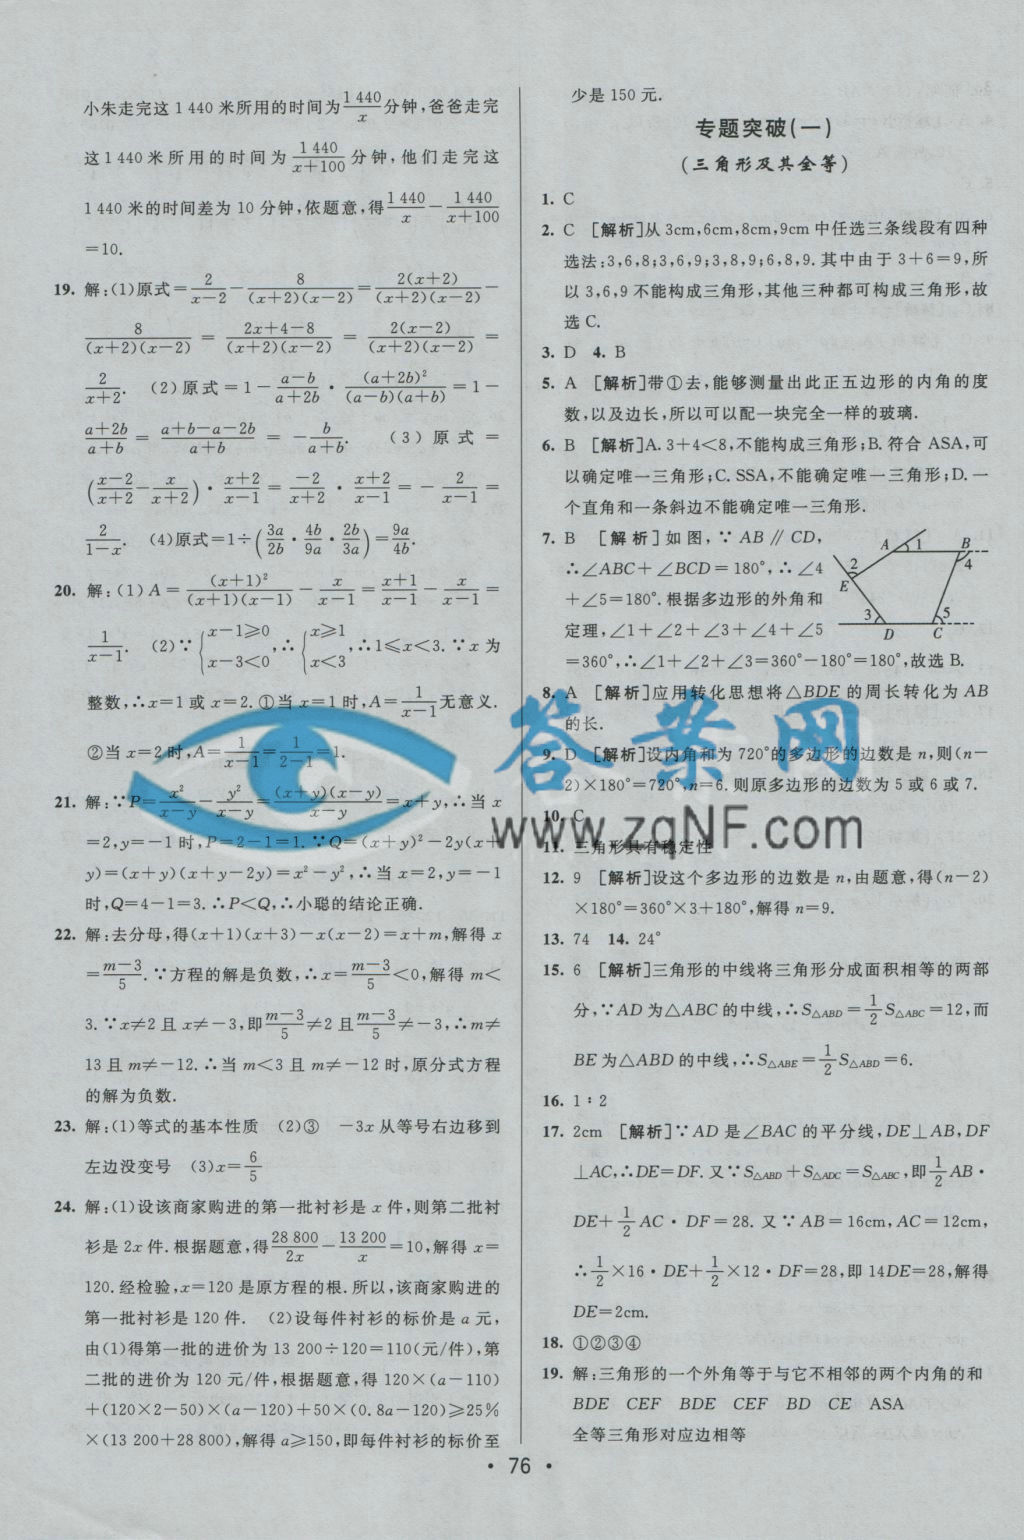 小朱走完这 1 440 米所用的时间为\frac{1 440}{x}分钟,爸爸走完
这 1 440 米所用的时间为\frac{1 440}{x+100}分钟,他们走完这
1 440 米的时间差为 10 分钟,依题意,得\frac{1 440}{x}-\frac{1 440}{x+100}
=10.
19. 解:(1)原式=\frac{2}{x-2}-\frac{8}{(x+2)(x-2)}=\frac{2(x+2)}{(x+2)(x-2)}-
\frac{8}{(x+2)(x-2)}=\frac{2x+4-8}{(x+2)(x-2)}=\frac{2(x-2)}{(x+2)(x-2)}=
\frac{2}{x+2}. (2)原式=1-\frac{a-b}{a+2b}·\frac{(a+2b)²}{(a-b)(a+b)}=1-
\frac{a+2b}{a+b}=\frac{a+b-a-2b}{a+b}=-\frac{b}{a+b}. (3)原式=
(\frac{x-2}{x+2}-\frac{x}{x+2})·\frac{x+2}{x-1}=\frac{-2}{x+2}·\frac{x+2}{x-1}=-\frac{2}{x-1}=
\frac{2}{1-x}. (4)原式=1÷(\frac{3a}{2b}·\frac{4b}{9a}·\frac{2b}{3a})=\frac{9a}{4b}.
20. 解:(1)A=\frac{(x+1)²}{(x+1)(x-1)}-\frac{x}{x-1}=\frac{x+1}{x-1}-\frac{x}{x-1}=
\frac{1}{x-1}. (2)∵{x-1≥0 x-3<0,∴{x≥1 x<3,∴1≤x<3.∵x 为
整数,∴x=1 或 x=2.①当 x=1 时,A=\frac{1}{x-1}无意义.
②当 x=2 时,A=\frac{1}{x-1}=\frac{1}{2-1}=1.
21. 解:∵P=\frac{x²}{x-y}-\frac{y²}{x-y}=\frac{(x+y)(x-y)}{x-y}=x+y,∴当 x
=2,y=-1 时,P=2-1=1.∵Q=(x+y)²-2y(x+
y)=(x+y)(x+y-2y)=x²-y²,∴当 x=2,y=-1
时,Q=4-1=3.∴P<Q,∴小聪的结论正确.
22. 解:去分母,得(x+1)(x+3)-x(x-2)=x+m,解得 x
=\frac{m-3}{5}.∵方程的解是负数,∴x=\frac{m-3}{5}<0,解得 m<
3.∵x≠2 且 x≠-3,即\frac{m-3}{5}≠2 且\frac{m-3}{5}≠-3,∴m≠
13 且 m≠-12.∴当 m<3 且 m≠-12 时,原分式方程
的解为负数.
23. 解:(1)等式的基本性质 (2)③ -3x 从等号右边移到
左边没变号 (3)x=\frac{6}{5}
24. 解:(1)设该商家购进的第一批衬衫是 x 件,则第二批衬
衫是 2x 件.根据题意,得\frac{28 800}{2x}-\frac{13 200}{x}=10,解得 x=
120.经检验,x=120 是原方程的根.所以,该商家购进的
第一批衬衫是 120 件. (2)设每件衬衫的标价是 a 元,
由(1)得第一批的进价为 13 200÷120=110(元/件),第
二批的进价为 120 元/件,根据题意,得 120×(a-110)
+(120×2-50)×(a-120)+50×(0.8a-120)≥25%
×(13 200+28 800),解得 a≥150,即每件衬衫的标价至
少是 150 元.
专题突破(一)
(三角形及其全等)
1. C
2. C [解析]从 3cm,6cm,8cm,9cm 中任选三条线段有四种
选法:3,6,8;3,6,9;3,8,9;6,8,9.其中由于 3+6=9,所
以 3,6,9 不能构成三角形,其他三种都可构成三角形,故
选 C.
3. D 4. B
5. A [解析]带①去,能够测量出此正五边形的内角的度
数,以及边长,所以可以配一块完全一样的玻璃.
6. B [解析]A.3+4<8,不能构成三角形;B.符合 ASA,可
以确定唯一三角形;C.SSA,不能确定唯一三角形;D.一
个直角和一条斜边不能确定唯一三角形.
7. B [解析]如图,∵AB∥CD,
∴∠ABC+∠BCD=180°,∴∠4
+∠5=180°.根据多边形的外角和
定理,∠1+∠2+∠3+∠4+∠5
=360°,∴∠1+∠2+∠3=360°-180°=180°,故选 B.
A 1 B
2 4
E
3 5
D C
8. A [解析]应用转化思想将△BDE 的周长转化为 AB
的长.
9. D [解析]设内角和为 720°的多边形的边数是 n,则(n-
2)×180°=720°,n=6.则原多边形的边数为 5 或 6 或 7.
10. C
11. 三角形具有稳定性
12. 9 [解析]设这个多边形的边数是 n,由题意,得(n-2)
×180°=360°×3+180°,解得 n=9.
13. 74 14. 24°
15. 6 [解析]三角形的中线将三角形分成面积相等的两部
分,∵AD 为△ABC 的中线,∴S△ABD=\frac{1}{2}S△ABC=12,而
BE 为△ABD 的中线,∴S△ABE=\frac{1}{2}S△ABD=6.
16. 1∶2
17. 2cm [解析]∵AD 是∠BAC 的平分线,DE⊥AB,DF
⊥AC,∴DE=DF.又∵S△ABD+S△ADC=S△ABC,即\frac{1}{2}AB·
DE+\frac{1}{2}AC·DF=28.又∵AB=16cm,AC=12cm,
∴\frac{1}{2}×16·DE+\frac{1}{2}×12·DF=28,即 14DE=28,解得
DE=2cm.
18. ①②③④
19. 解:三角形的一个外角等于与它不相邻的两个内角的和
BDE CEF BDE CEF BD CE ASA
全等三角形对应边相等
答案网
www.zqNF.com
· 76 ·